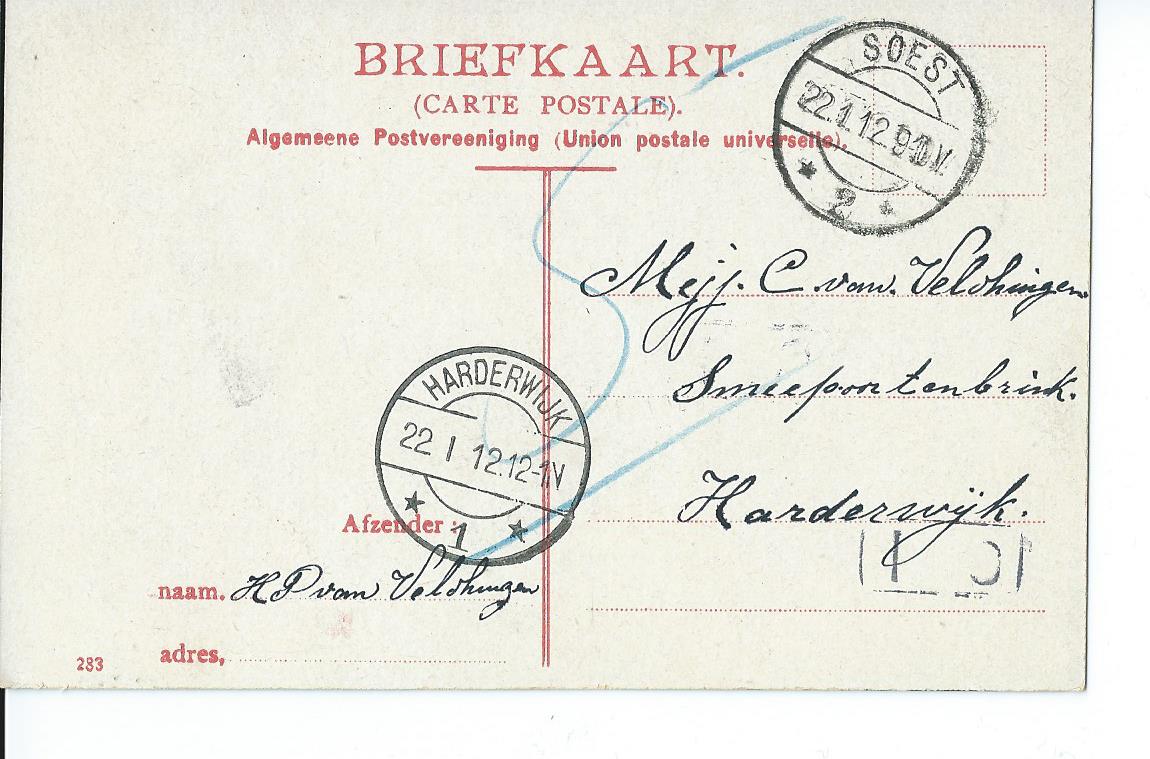 BRIEFKAART.
(CARTE POSTALE).
Algemeene Postvereeniging (Union postale universelle).
SOEST
22.1.12.9-10V.
2
Mejj. C. van. Veldhuizen
Smeepoortenbrink.
Harderwijk.
HARDERWIJK
22 I 12.12-1N
1
Afzender:
naam. H P van Veldhuizen
adres,
283